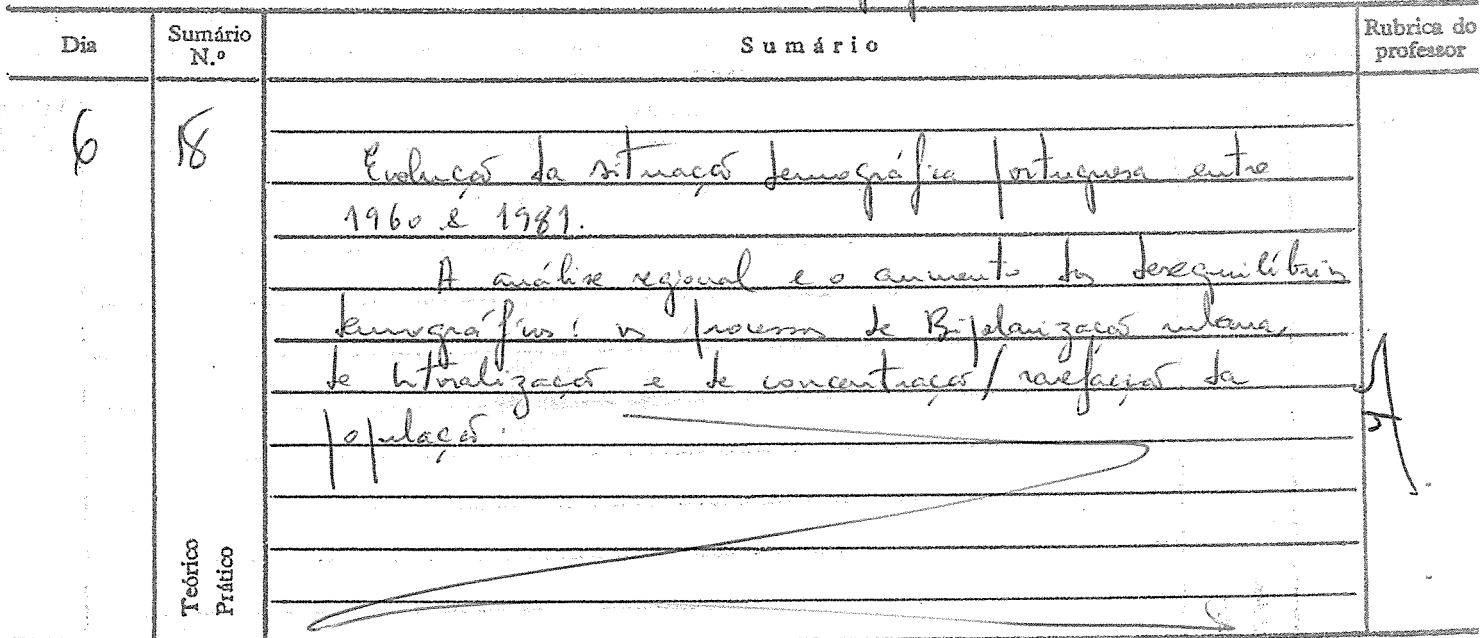 Dia Sumário N.º Sumário Rubrica do professor
6 18
Evolução da situação demográfica portuguesa entre
1960 e 1981.
A análise regional e o aumento dos desequilíbrios
demográficos: os processos de Bipolarização urbana,
de litoralização e de concentração/rarefacção da
população.
Teórico
Prático